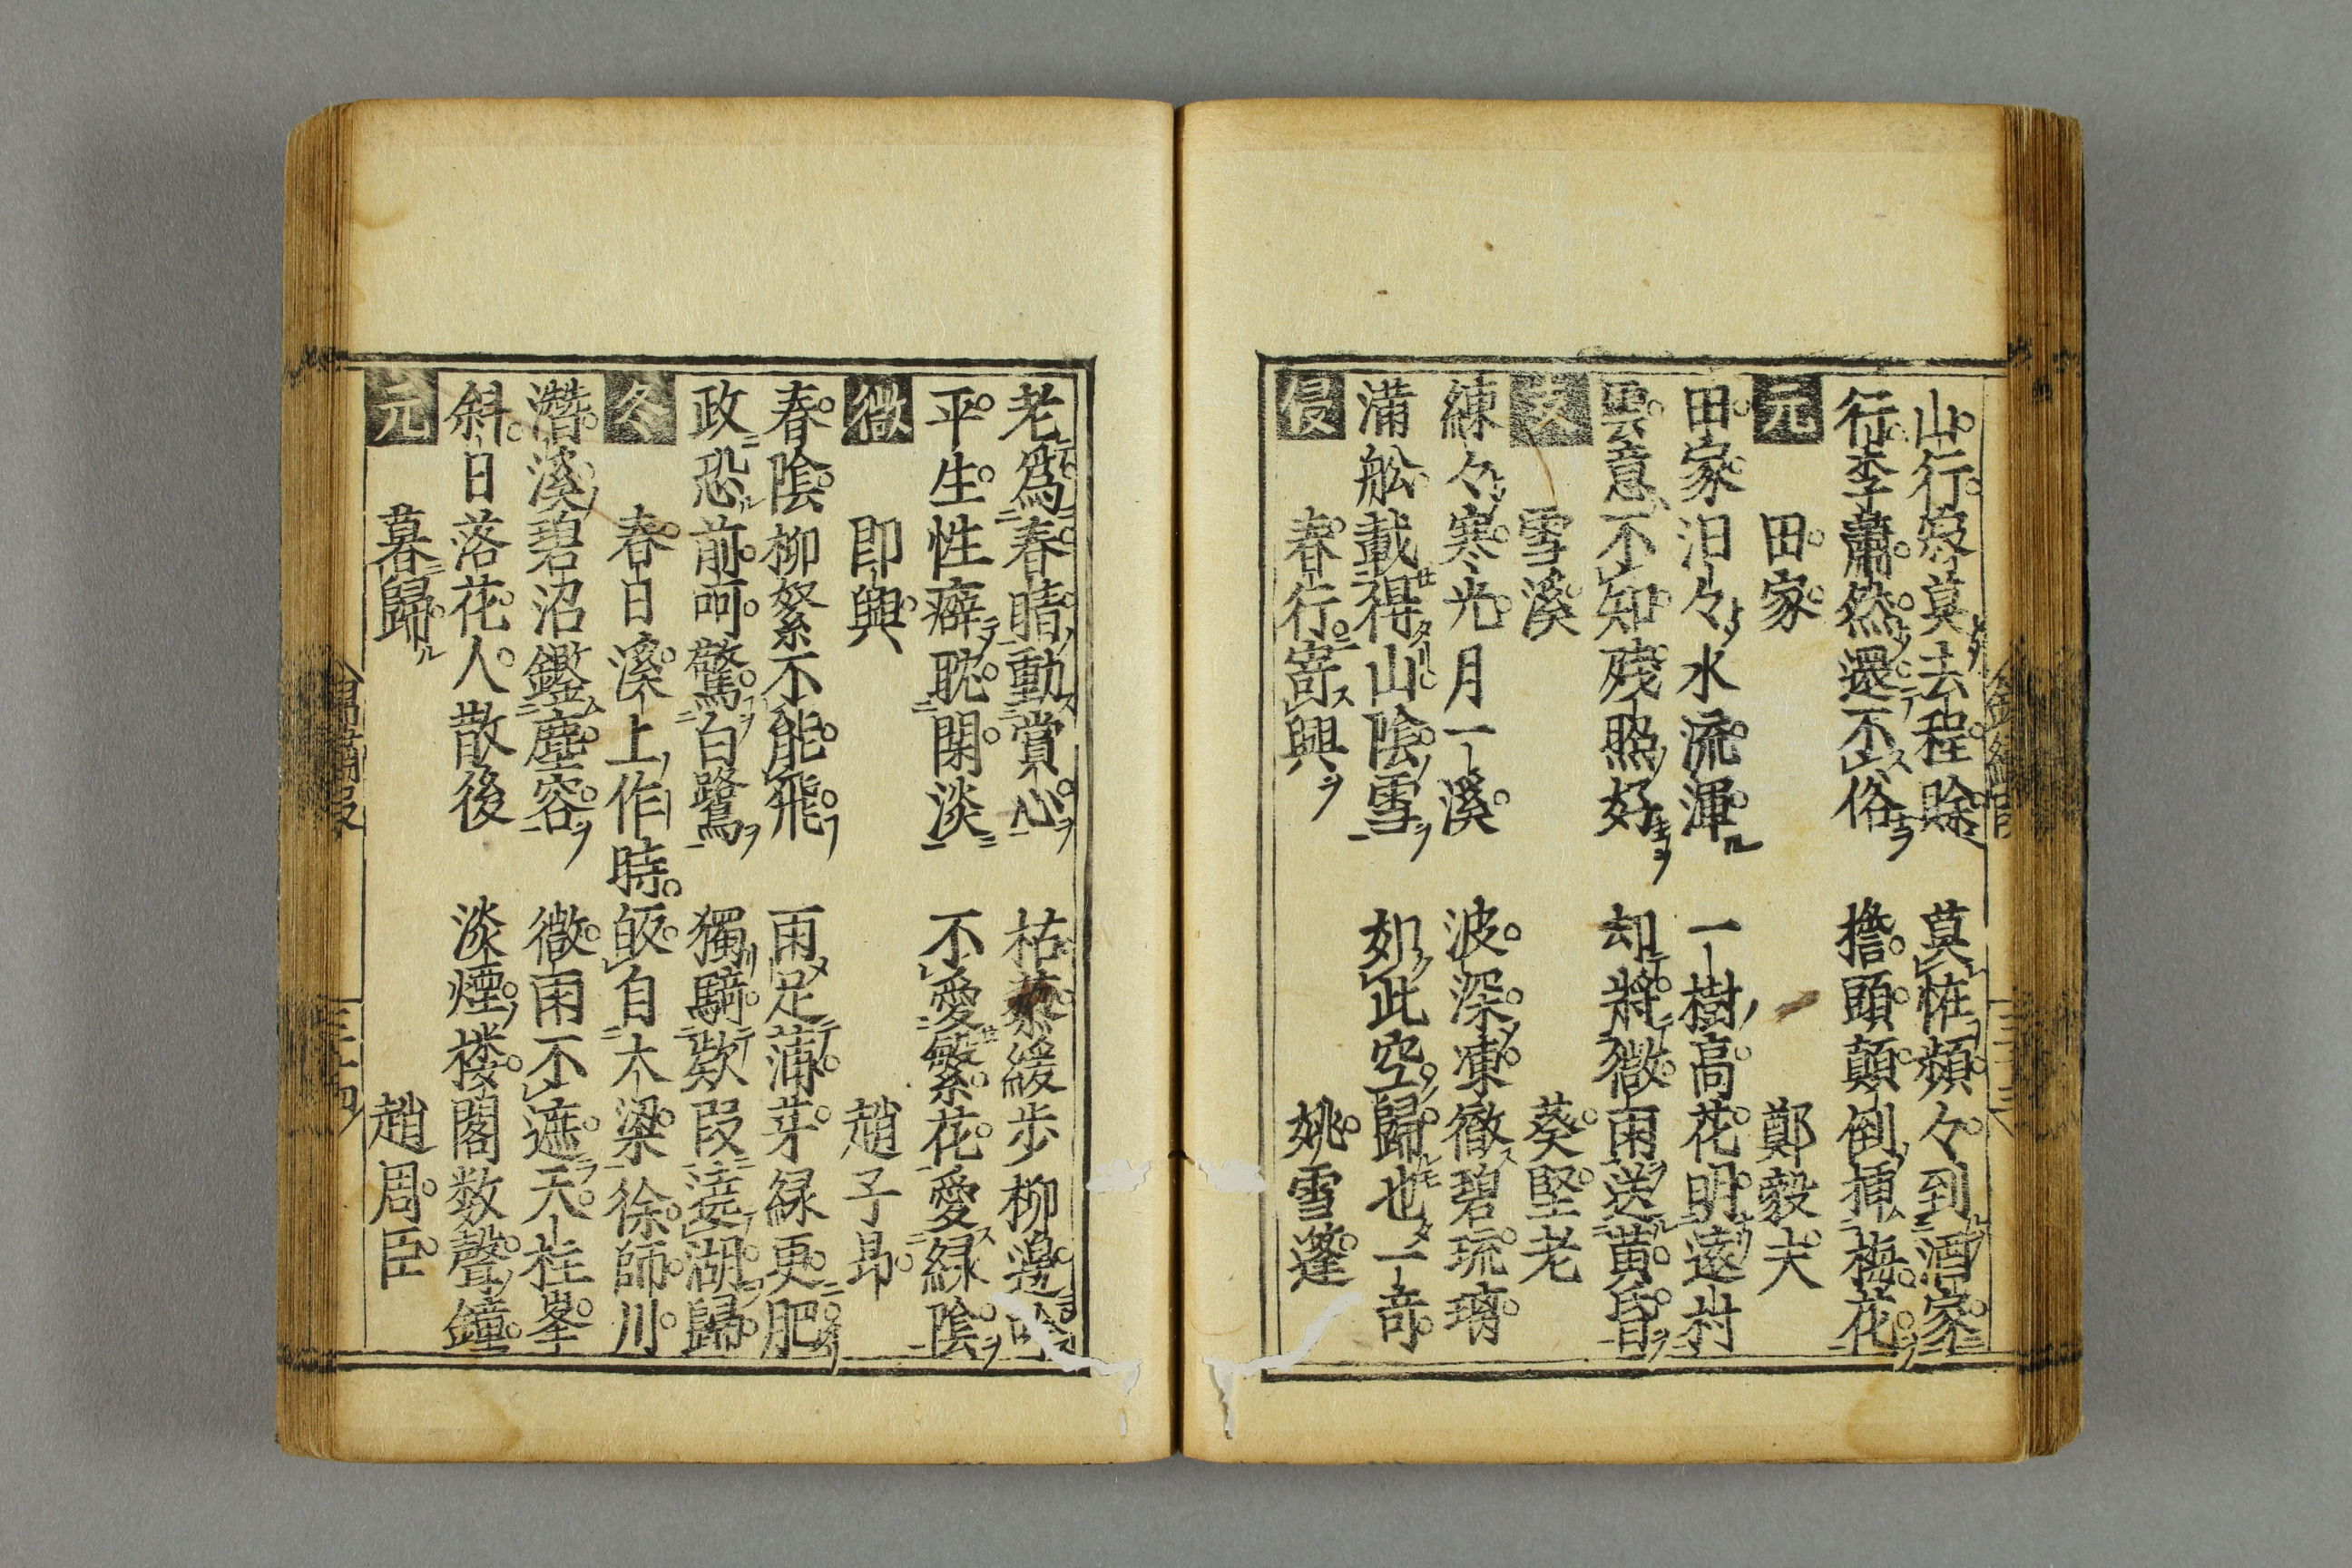 山行寂莫去程賖　莫恠頻々到酒家
行李蕭然還不俗　擔頭顛倒挿梅花
元　田家　鄭毅夫
田家汨々水流渾　一樹高花明遠村
雲意不知殘照好　却將微雨送黄昏
支　雪溪　葵堅老
練々寒光月一溪　波深凍徹碧琉璃
滿舩載得山陰雪　如此空歸也一奇
侵　春行寄興　姚雪篷
老爲春晴動賞心　枯藜緩步柳邊吟
平生性癖耽閑淡　不愛繁花愛緑陰
微　即興　趙子昻
春陰柳絮不能飛　雨足蒲芽緑更肥
政恐前呵驚白鷺　獨騎欵叚遶湖歸
冬　春日溪上作時皈自太梁　徐師川
潛溪碧沼鑑塵容　微雨不遮天柱峯
斜日落花人散後　淡煙楼閣数聲鐘
元　暮歸　趙周臣
三十四